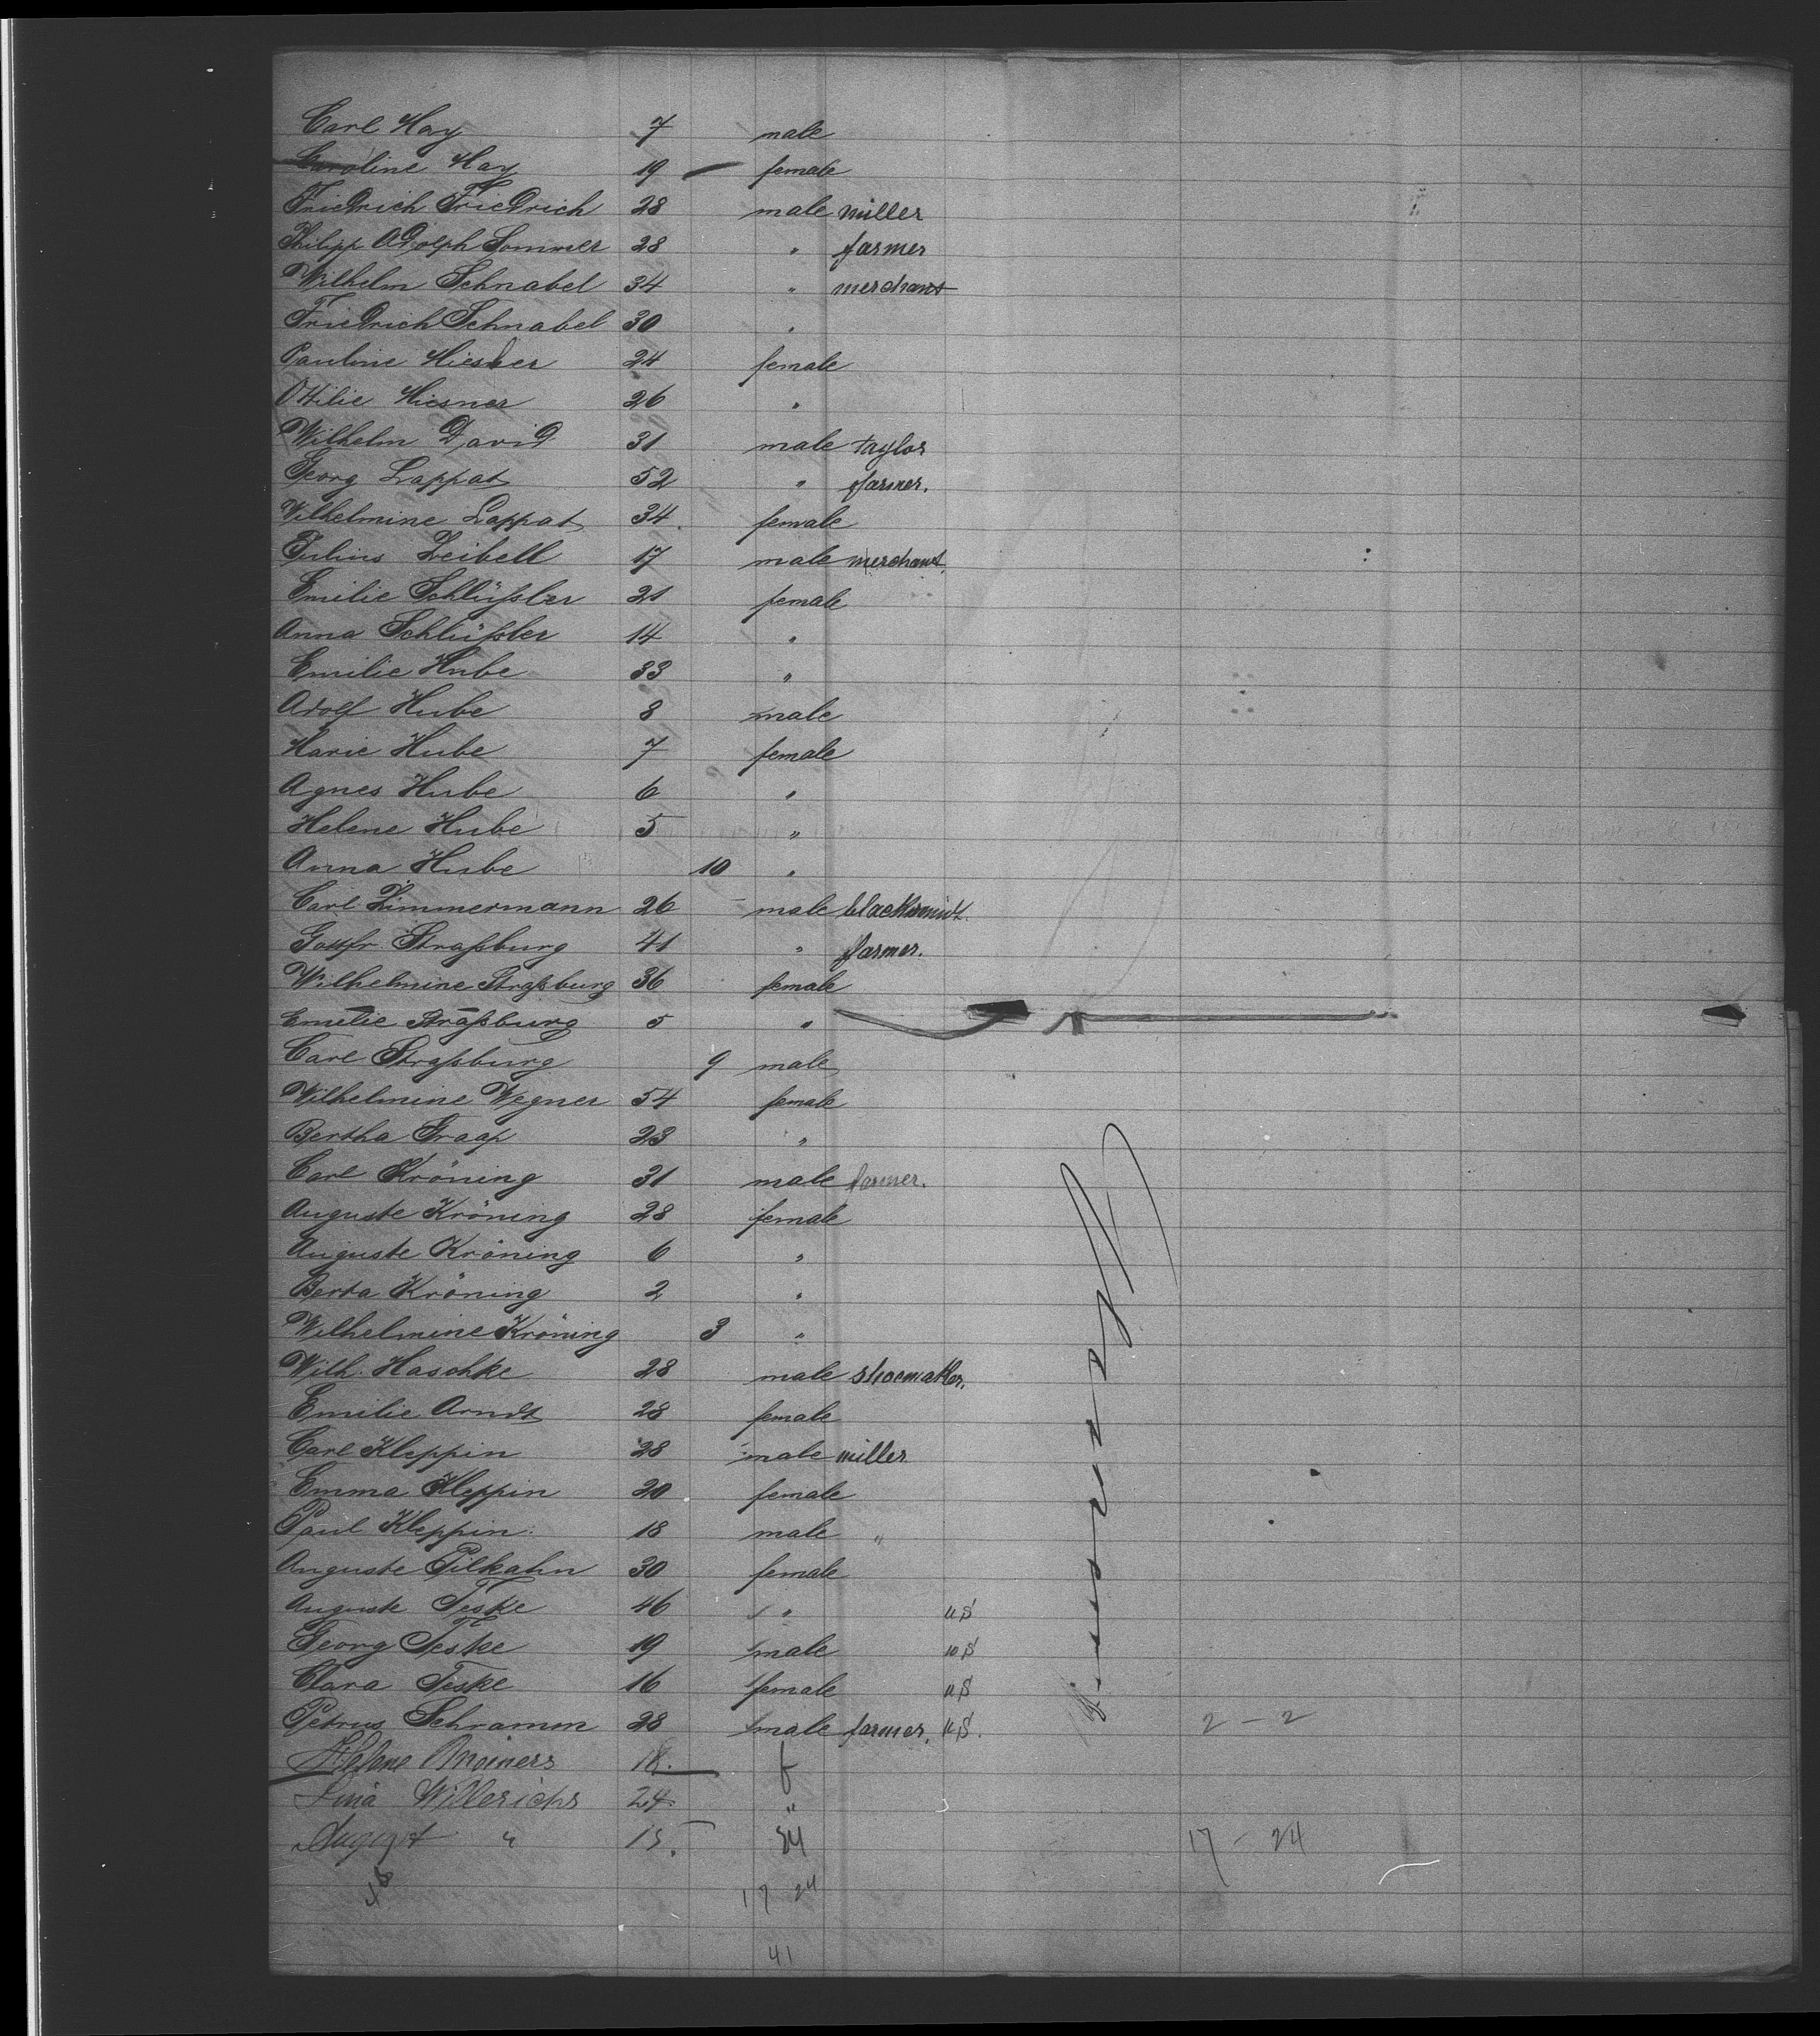 Carl Hay 7 male
Caroline Hay 19 female
Friedrich Friedrich 28 male miller
Philipp Adolph Sommer 28 " farmer
Wilhelm Schnabel 34 " merchant
Friedrich Schnabel 30 "
Pauline 24 female
Ottilie Hiesner 26 "
Wilhelm David 31 male taylor
Georg Lappat 52 " farmer.
Wilhelmine Lappat 34. female
Julius Zeibell 17 male merchant.
Emilie Schlüßler 21 female
Anna Schlüßler 14 "
Emilie Hube 33 "
Adolf Hube 8 male
Marie Hube 7 female
Agnes Hube 6 "
Helene Hube 5 "
Anna Hube 10 "
Carl Zimmermann 26 male blacksmidt.
Gottfr Straßburg 41 " farmer.
Wilhelmine Straßburg 36 female
Emilie Straßburg 5 "
Carl Straßburg 9 male
Wilhelmine Wegner 54 female
Bertha Graap 23 "
Carl Kröning 31 male farmer.
Auguste Kröning 28 female
Auguste Kröning 6 "
Berta Kröning 2 "
Wilhelmine Kröning 3 "
Wilh. Haschke 28 male shoemaker.
Emilie Arndt 28 female
Carl Kleppin 28 male miller
Emma Kleppin 20 female
Paul Kleppin 18 male "
Auguste Pilkahn 30 female
Auguste Teske 46 "
Georg Teske 19 male
Clara Teske 16 female
Petrus Schramm 28 male farmer. 2 - 2
Helene Meiners 18. f
Lina Willerichs 24 "
August " 15. 17 - 24
48 17 24
41